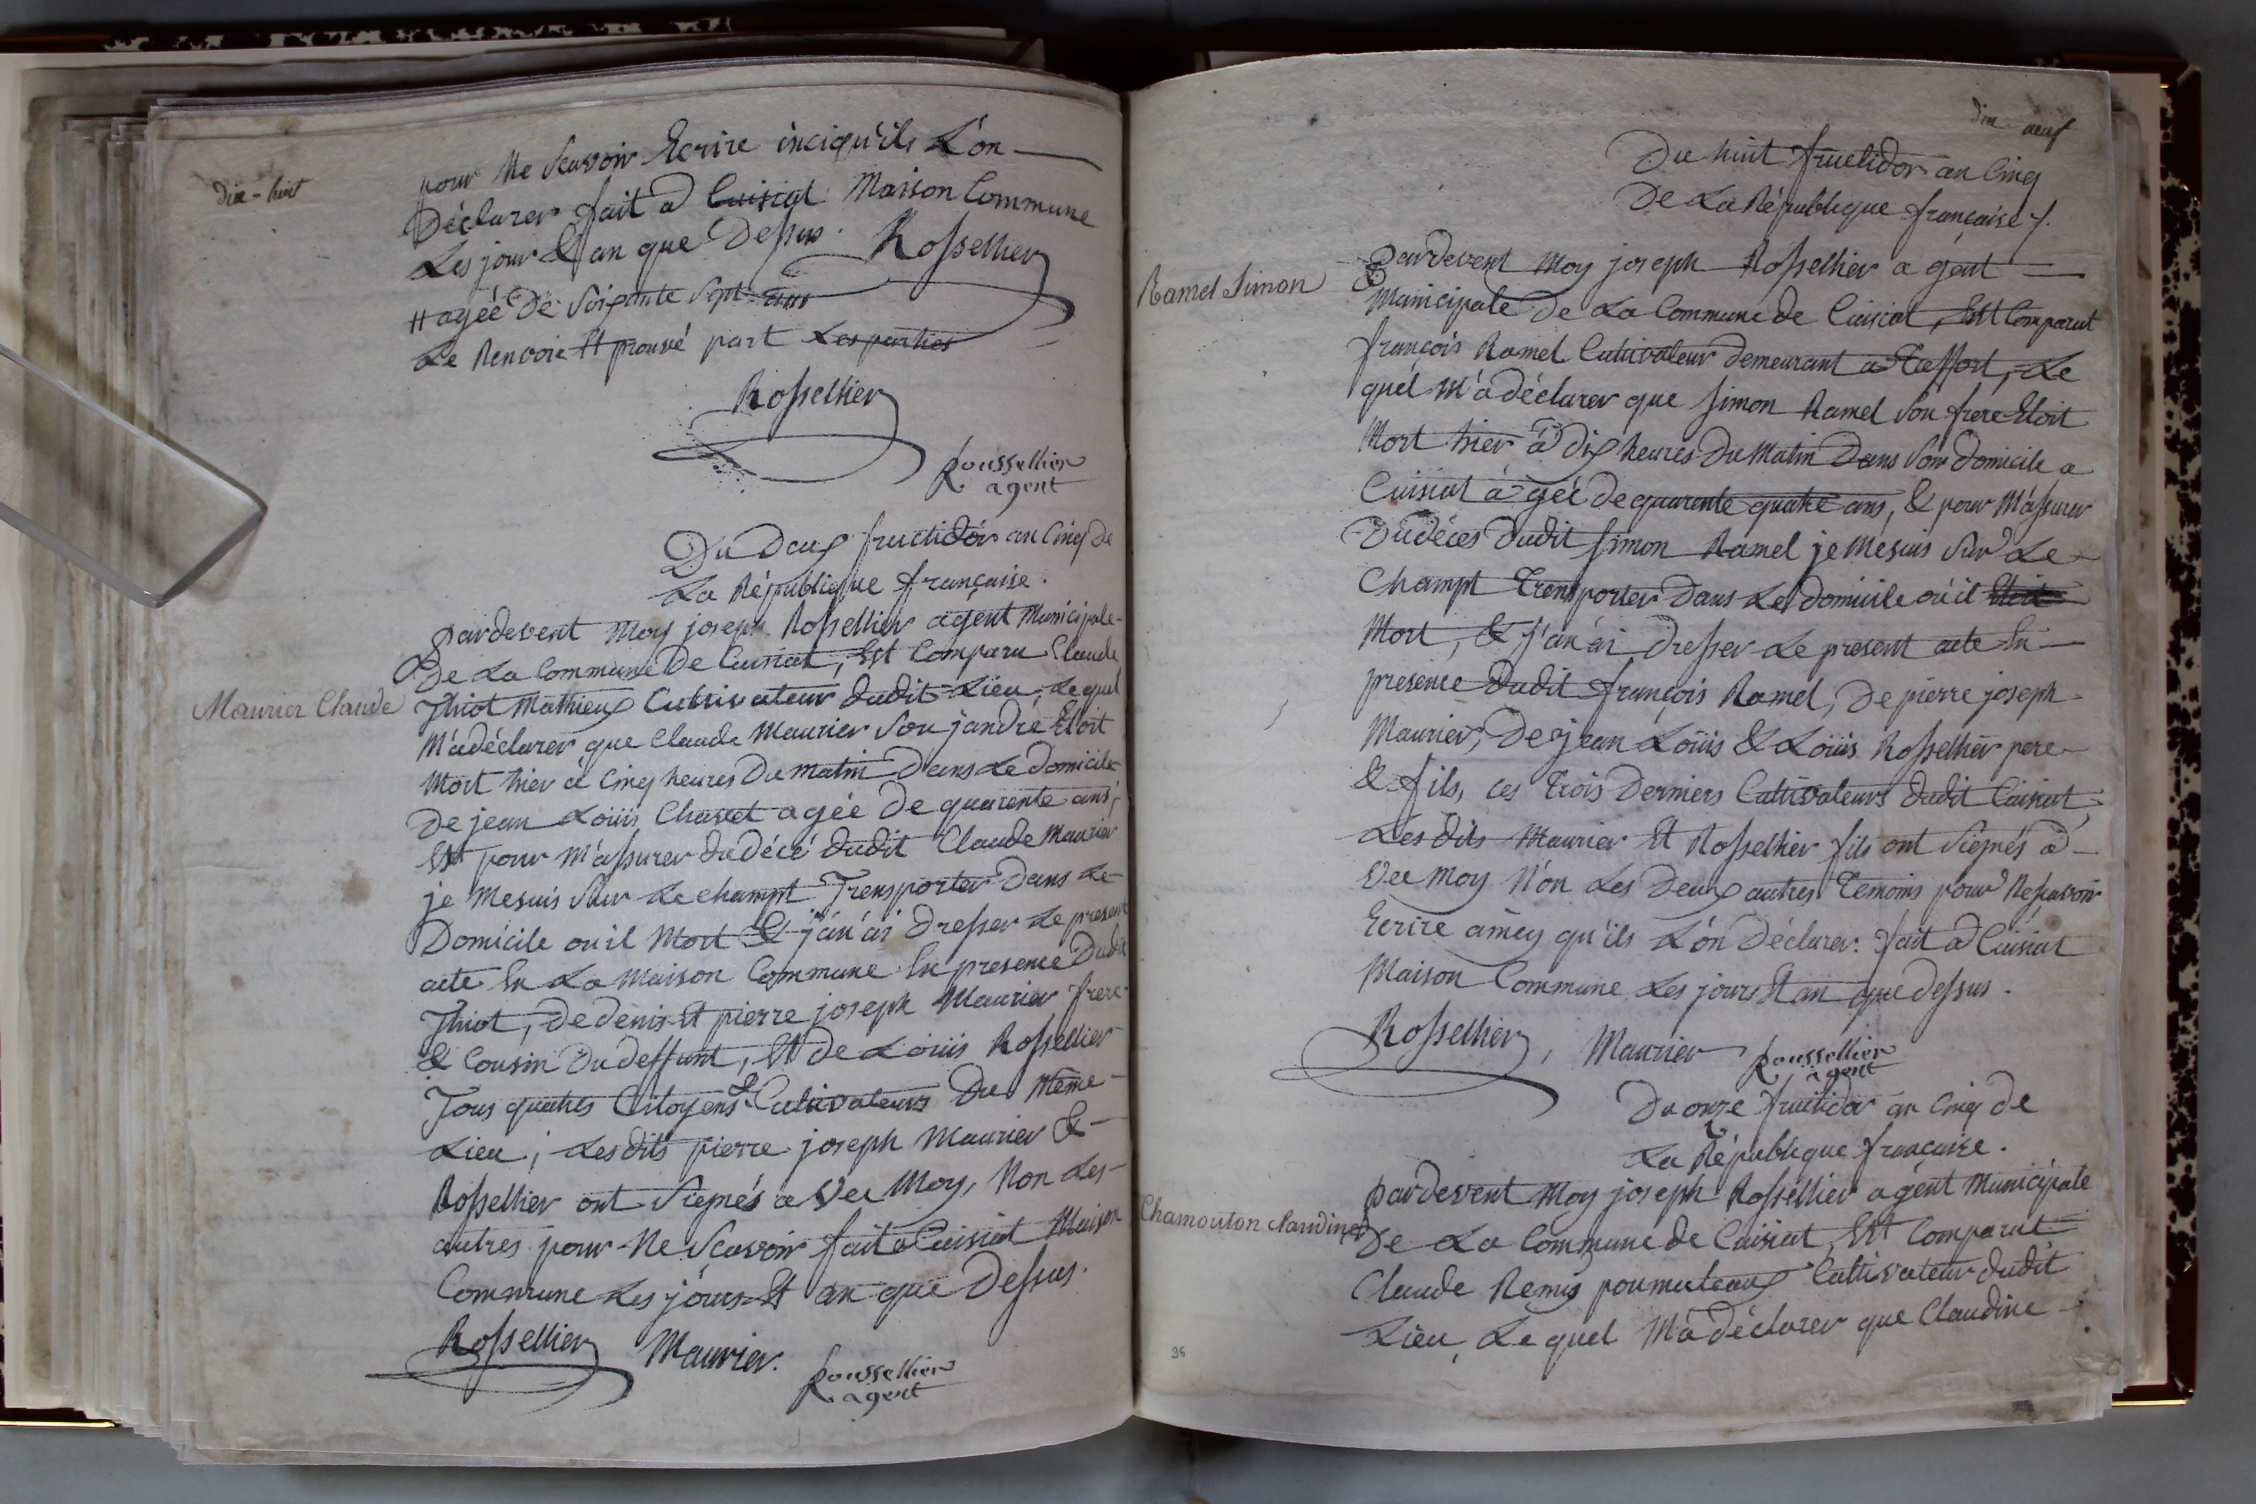 dix-huit
pour Ne Scavoir Ecrire inciqu'ils L'on
Déclarer fait a Cuisiat Maison Commune
Les jour & an que Dessus. Rossellier
# agée De Soixante Sept ans
Le Renvoie Et prouvé part Les parties
Rossellier
Roussellier
agent
Du Deux fructidor an Cinq de
La République française.
pardevent Moy joseph Rossellier agent Municipale
De La Commune De Cuisiat, Est Comparu Claude
Maurier Claude
Thiot Mathieux Cultivateur dudit Lieu, Lequel
M'a déclarer que Claude Maurier Son jandre Etoit
Mort hier à Cinq heures Du matin Dans Le Domicile
De jean Loüis Chavet agée De quarente ans,
Et pour M'assurer du décé dudit Claude Maurier
je Mesuis Sur Le champt Trensporter Dans Le
Domicile ou il Mort & j'an'ai Dresser Le present
acte En La Maison Commune En presence Dudit
Thiot, De denis Et pierre joseph Maurier frere
& Cousin Du deffunt, Et de Loüis Rossellier
Tous quatres Citoyens & Cultivateurs Du Même
Lieu, Lesdits pierre joseph Maurier &
Rossellier ont Siegnés a Vec Moy, Non Les
autres pour Ne Scavoir fait a Cuisiat Maison
Commune Les jours Et an que Dessus.
Rossellier Maurier.
Roussellier
agent
dix-neuf
Du huit fructidor an Cinq
De La République française
Ramel Simon
pardevent Moy joseph Rossellier agent
Municipale De La Commune de Cuisiat, Est Comparut
françois Ramel Cultivateur demeurant a Treffort, Le
quel M'a déclarer que Simon Ramel Son frere Etoit
Mort hier à dix heures Du Matin Dans Son domicile a
Cuisiat à gée de quarente quatre ans, & pour M'assurer
Du déces dudit Simon Ramel je Mesuis Sur Le
Champt Trensporter Dans Le domicile où il Etoit
Mort, & j'an'ai dresser Le present acte En
presence dudit françois Ramel, De pierre joseph
Maurier, De jean Loüis & Loüis Rossellier pere
& fils, ces Trois Derniers Cultivateurs dudit Cuisiat,
Les dits Maurier Et Rossellier fils ont Siegnés à
Vec Moy N'on Les Deux autres Temoins pour Nescavoir
Ecrire aincy qu'ils L'on Déclarer. fait à Cuisiat
Maison Commune Les jours Et an que dessus.
Rossellier, Maurier
Roussellier
agent
Du onze fructidor an Cinq de
La République française.
pardevent Moy joseph Rossellier agent Municipale
Chamouton Claudine
De La Commune de Cuisiat Est Comparut
Claude Remy poumuleaux Cultivateur dudit
Lieu, Le quel M'a déclarer que Claudine